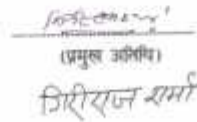 (प्रमुख अतिथि)
गिरीराज शर्मा